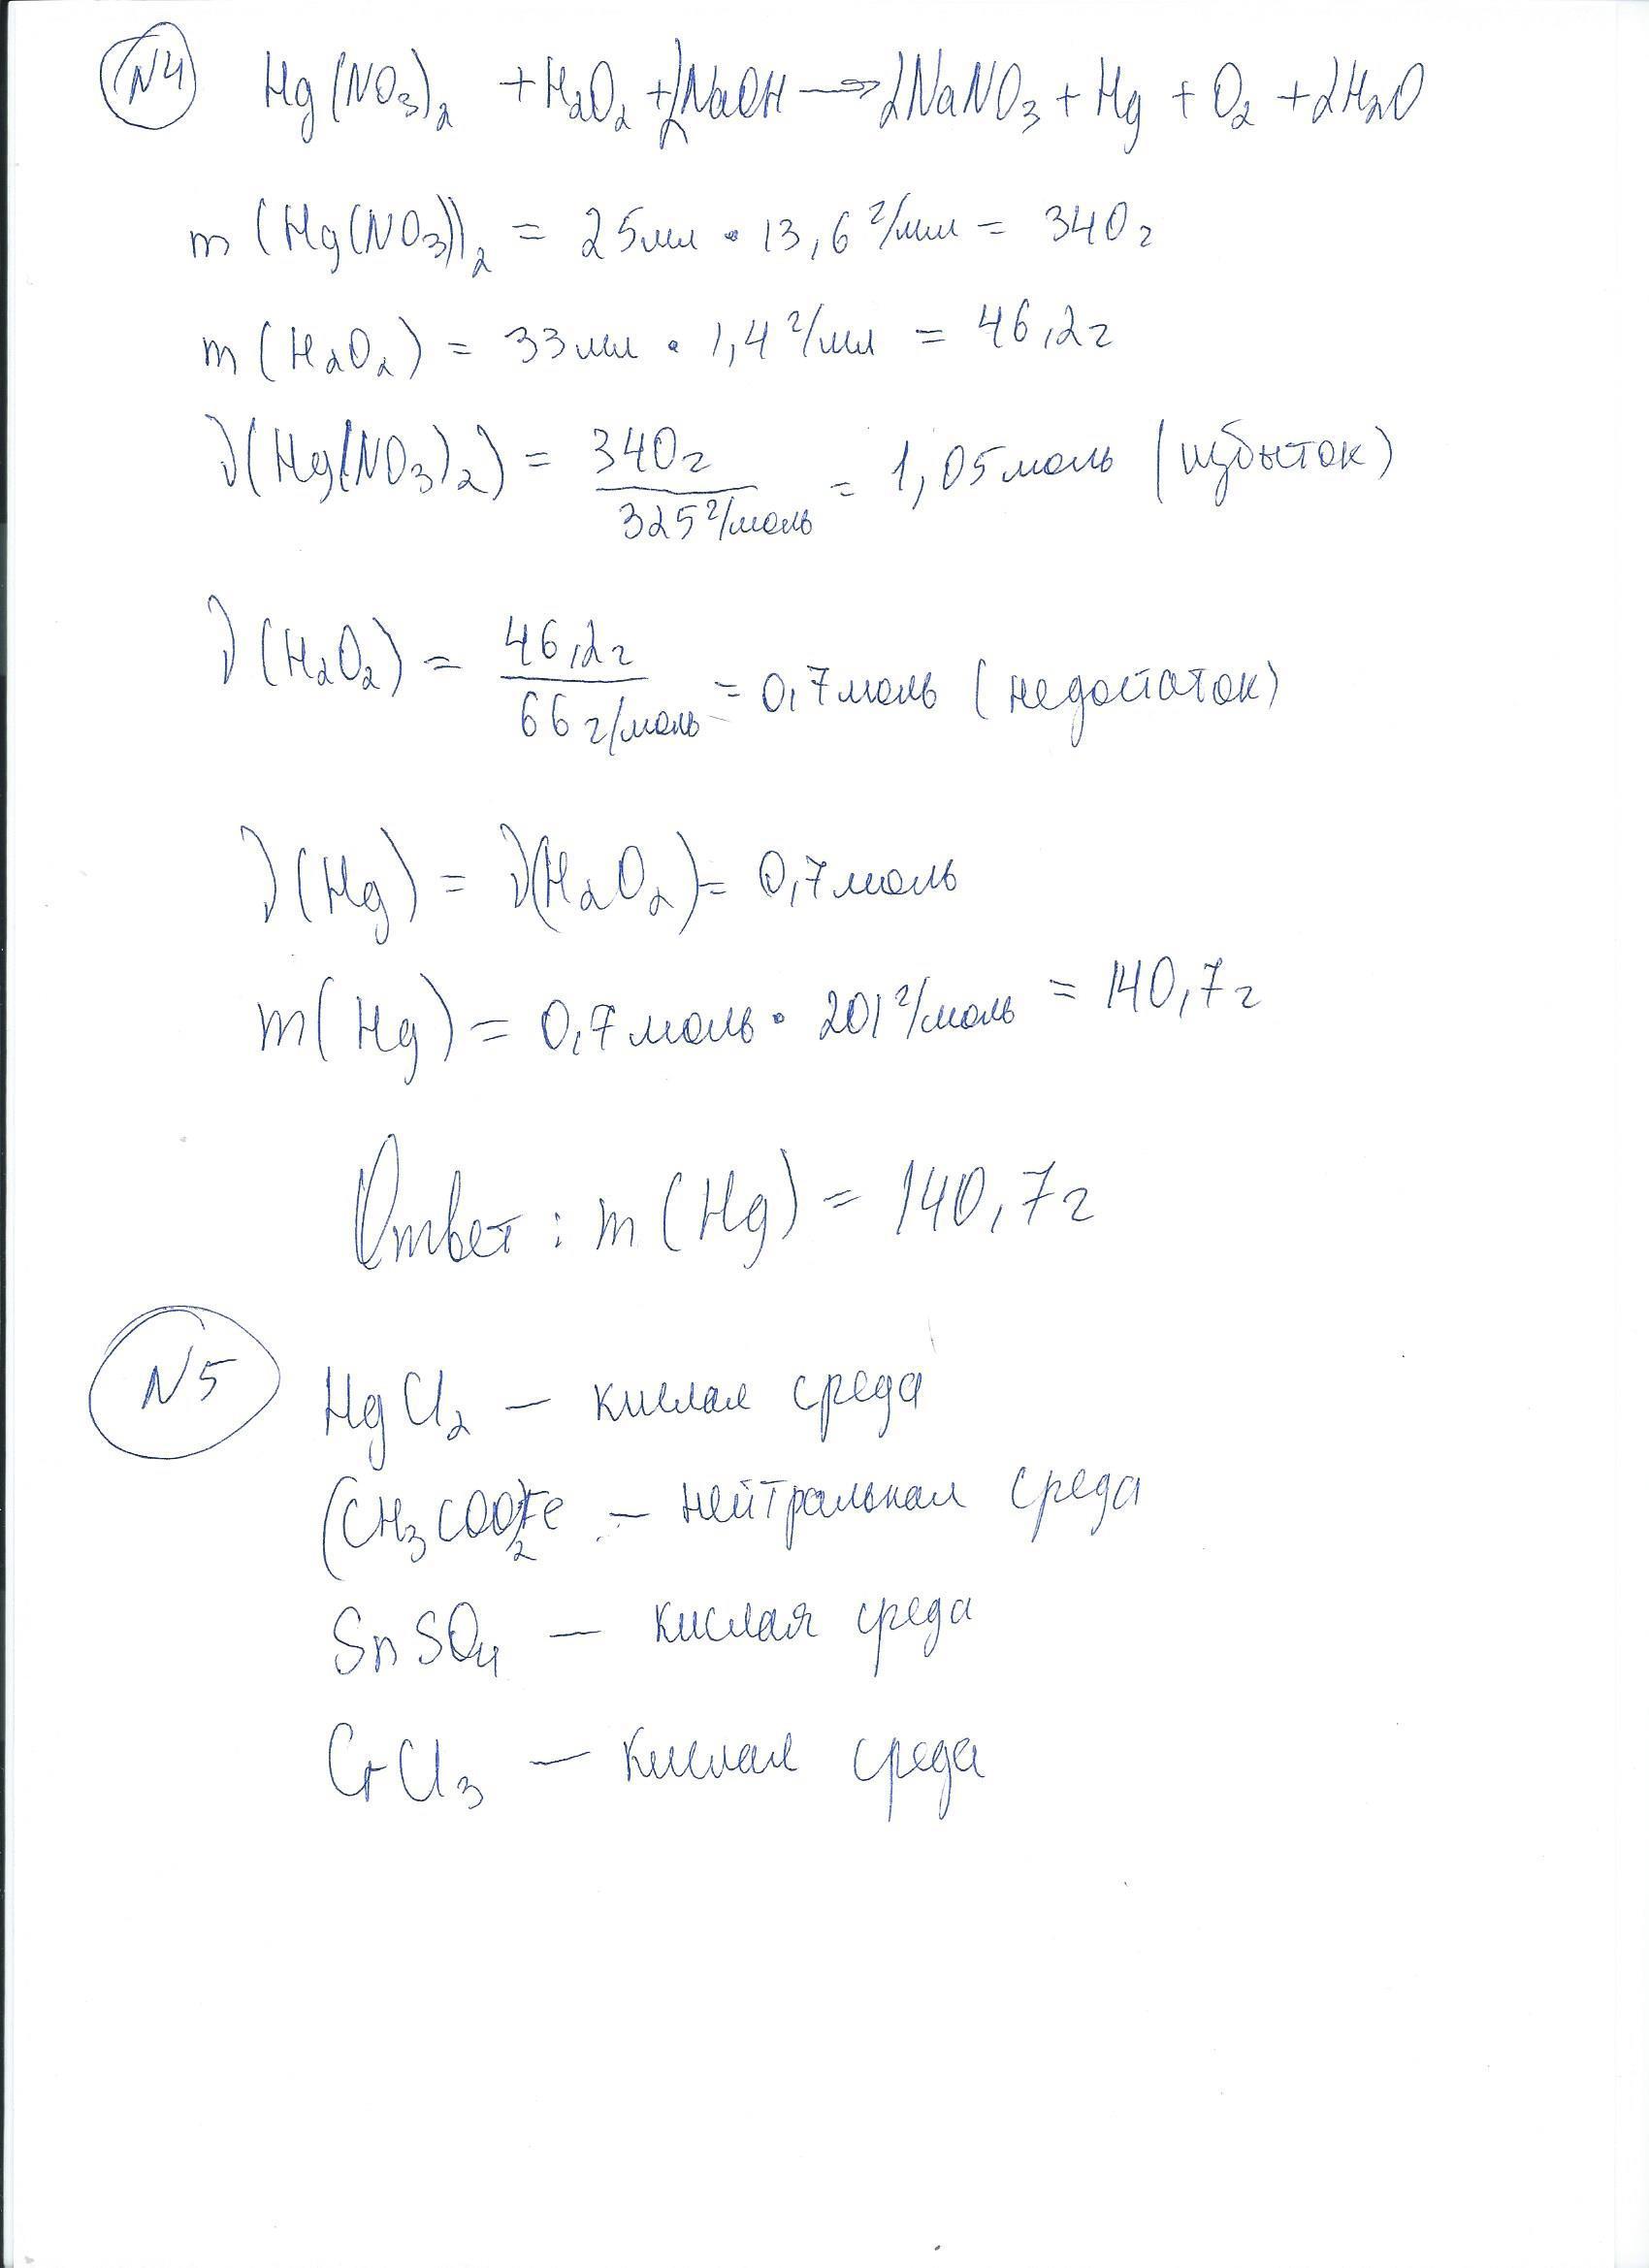 N4 Hg(NO3)2 + H2O2 + 2NaOH → 2NaNO3 + Hg + O2 + 2H2O
m (Hg(NO3))2 = 25мл • 13,6 г/мл = 340г
m (H2O2) = 33мл • 1,4 г/мл = 46,2г
ν(Hg(NO3)2) = 340г / 325 г/моль = 1,05моль (избыток)
ν(H2O2) = 46,2г / 66 г/моль = 0,7моль (недостаток)
ν(Hg) = ν(H2O2) = 0,7моль
m(Hg) = 0,7моль • 201 г/моль = 140,7г
Ответ : m(Hg) = 140,7г
N5 HgCl2 – кислая среда
(CH3COO)2Fe – нейтральная среда
SnSO4 – кислая среда
CrCl3 – кислая среда